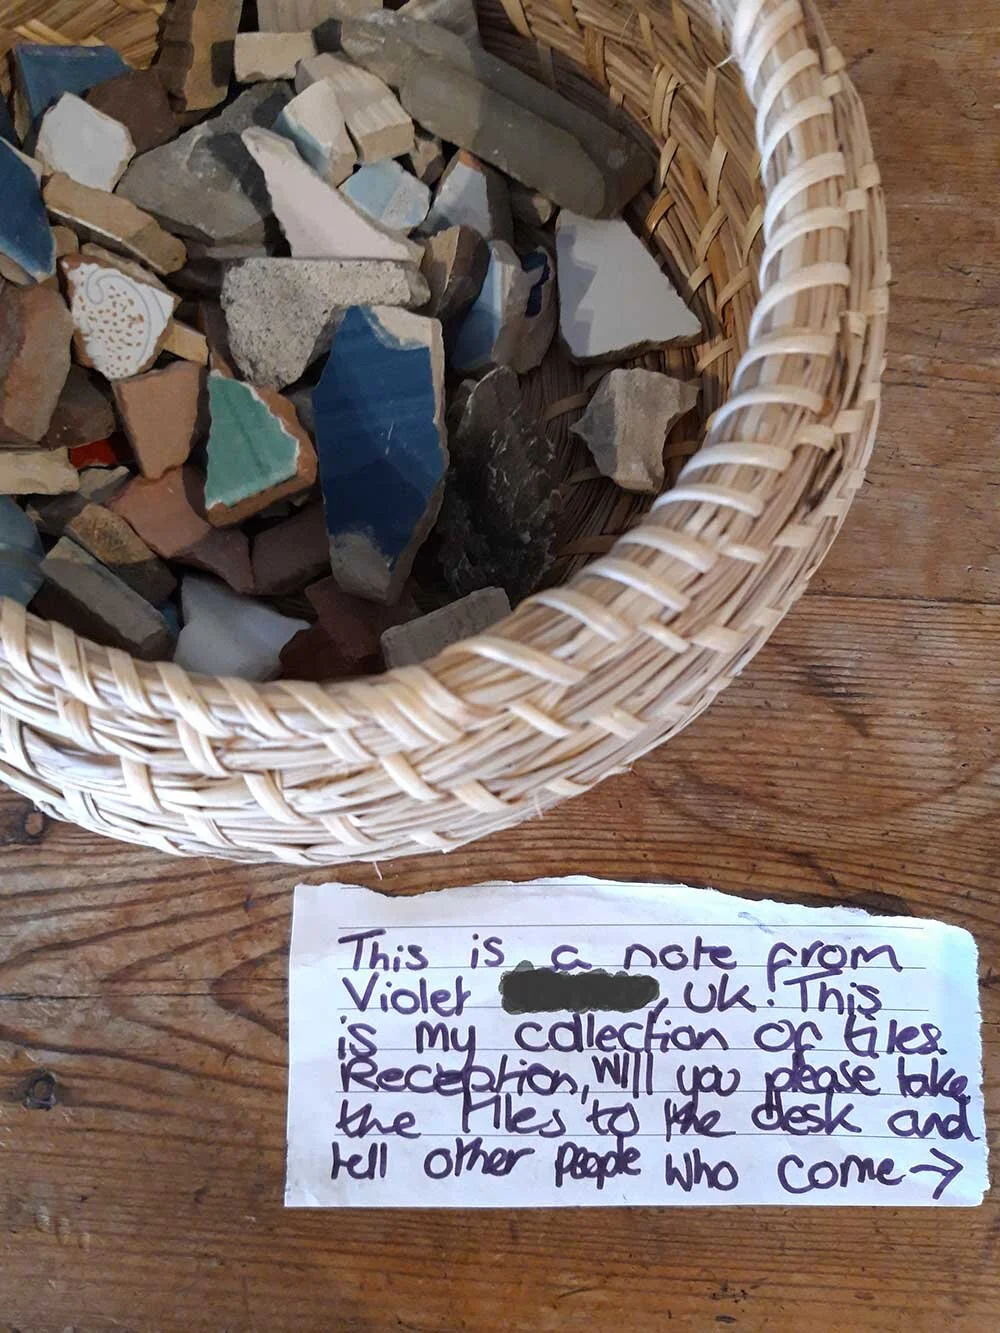 This is a note from
Violet , UK. This
is my collection of tiles.
Reception, Will you please take
the tiles to the desk and
tell other people who come →